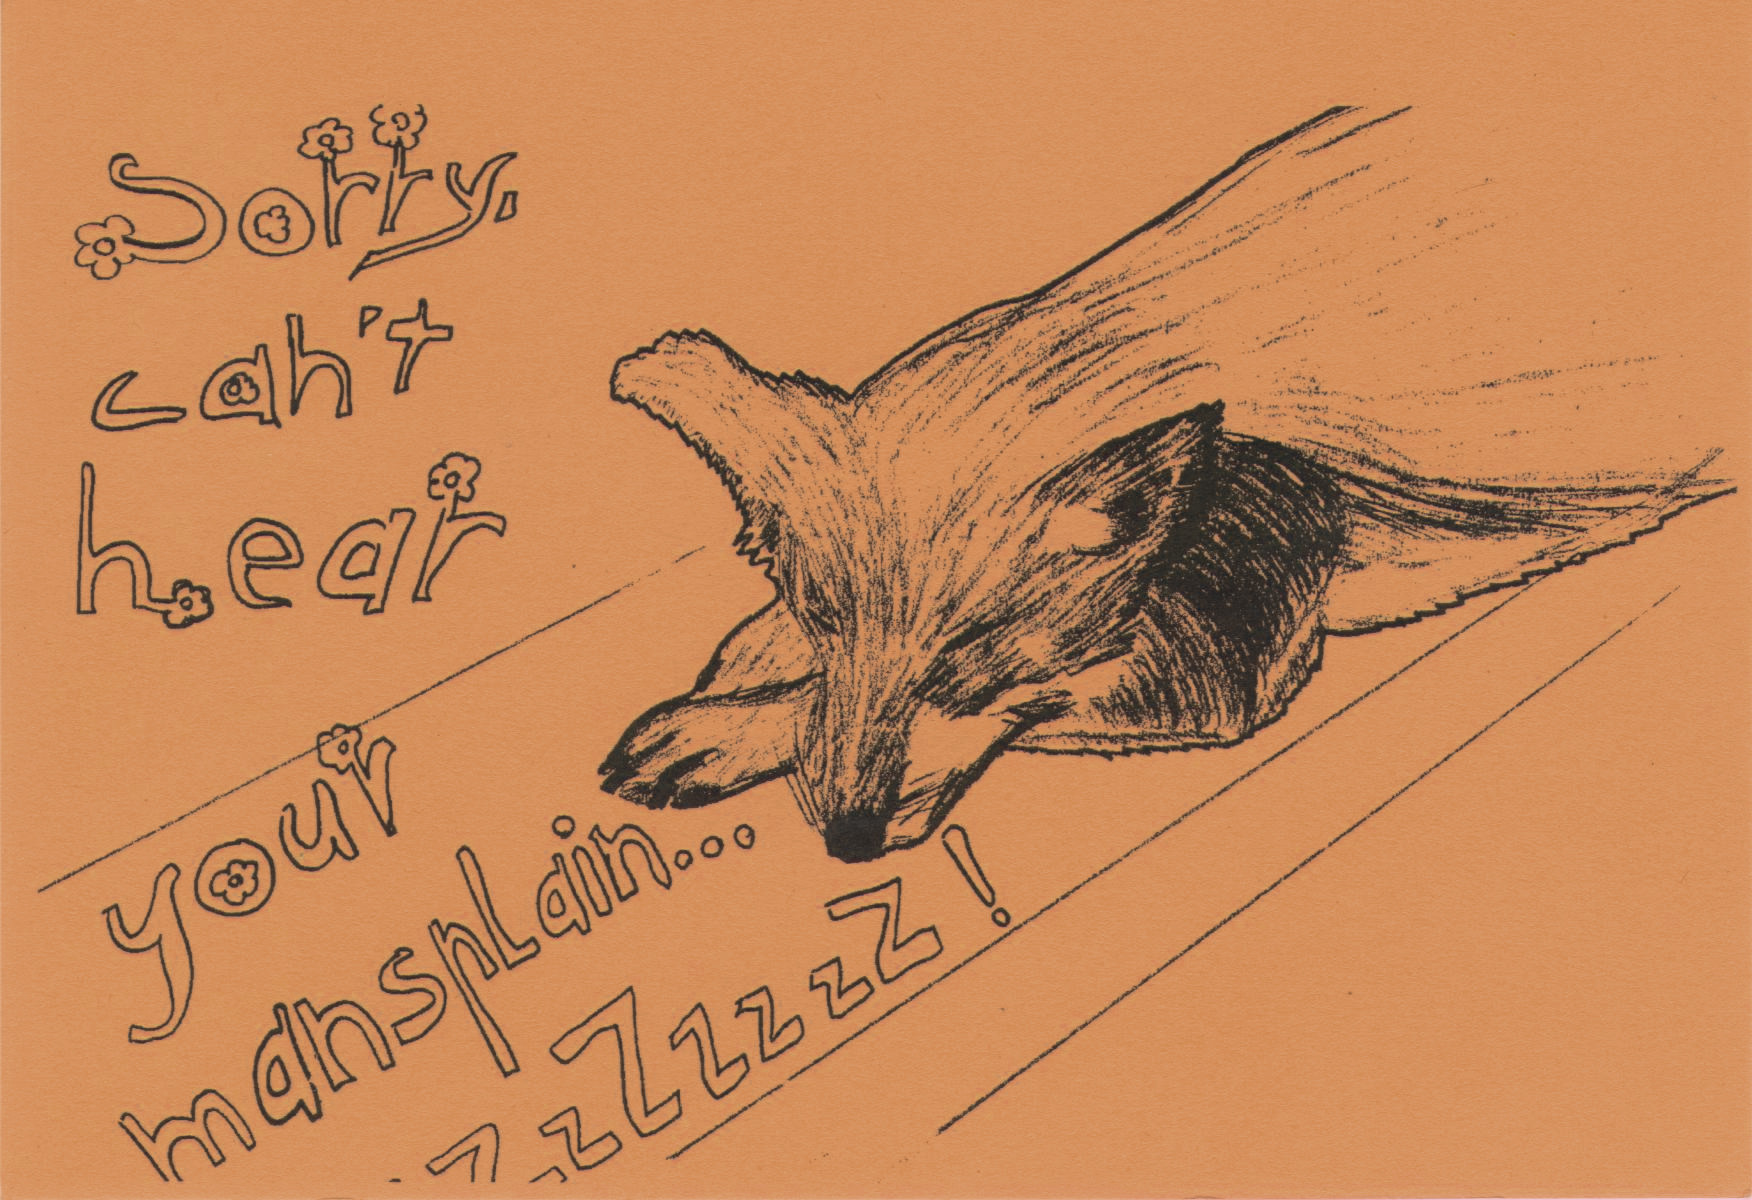 Sorry,
can't
hear
your
mansplain...
ZzzZzzzzZ!